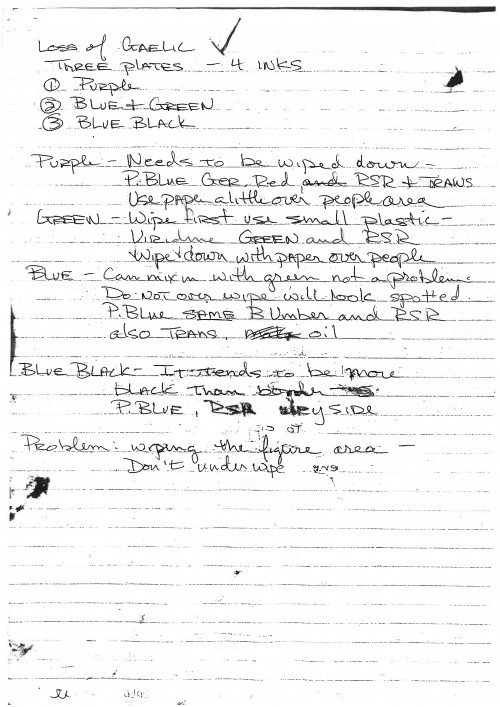 Loss of GAELIC ✓
THREE PLATES - 4 INKS
① Purple
② BLUE + GREEN
③ BLUE BLACK
Purple - Needs to be wiped down -
P. BLUE Ger. Red and RSR + TRANS
Use paper a little over people area
GREEN - Wipe first use small plastic -
Viridine GREEN and RSR
wipe down with paper over people
BLUE - Can mix in with green not a problem.
Do not over wipe will look spotted
P. Blue SAME B Umber and RSR
also TRANS, oil
BLUE BLACK - It tends to be more
black than border
P. BLUE, RSR
Problem: wiping the figure area -
Don't under wipe